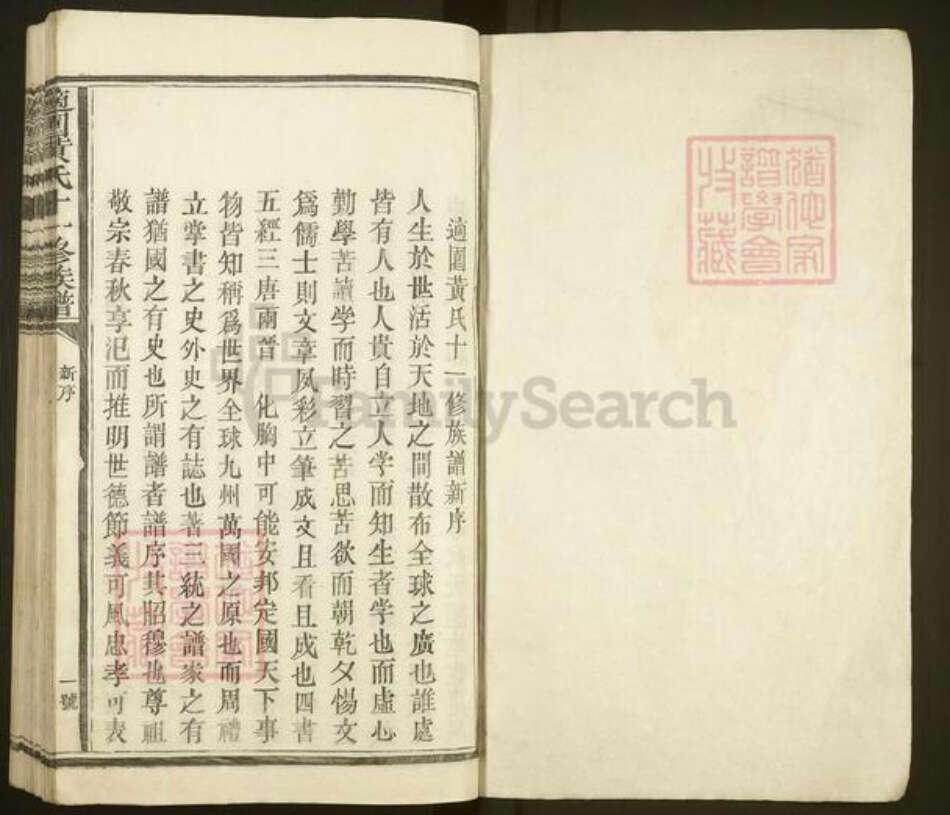 適園黃氏十一修族譜新序
人生於世活於天地之間散布全球之廣也誰處
皆有人也人貴自立人学而知生者学也而虛心
勤學苦讀学而時習之苦思苦欲而朝乾夕惕文
爲儒士則文章风彩立筆成文且看且成也四書
五經三唐兩晉 化胸中可能安邦定國天下事
物皆知稱爲世界全球九州萬國之原也而周禮
立掌書之史外史之有誌也著三統之譜家之有
譜猶國之有史也所謂譜者譜序其昭穆也尊祖
敬宗春秋享汜而推明世德節義可風忠孝可表
適園黃氏十一修族譜
新序
一號
譜學會
FamilySearch